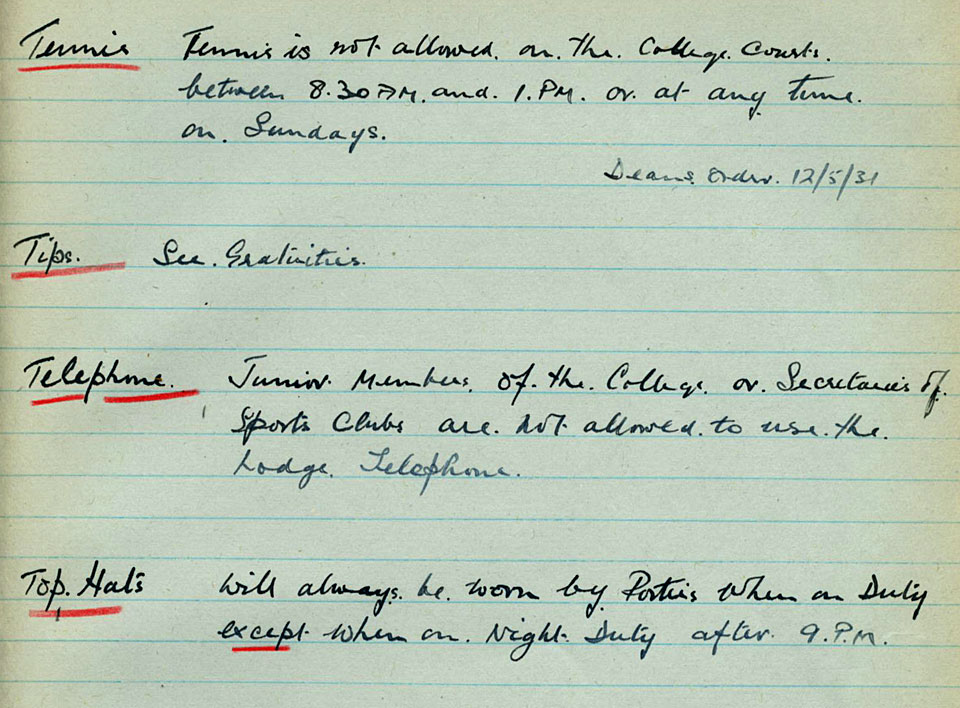 Tennis Tennis is not allowed. on. the. College. Courts.
between 8.30 AM. and. 1. PM. or. at any time.
on. Sundays.
Deans. Order. 12/5/31
Tips. See. Gratuities.
Telephone. Junior. Members. of. the. College. or. Secretaries of.
Sports Clubs are. not. allowed. to use. the.
Lodge. Telephone.
Top. Hats will always. be. worn by Porters when on Duty
except when on. Night. Duty after. 9. P.M.